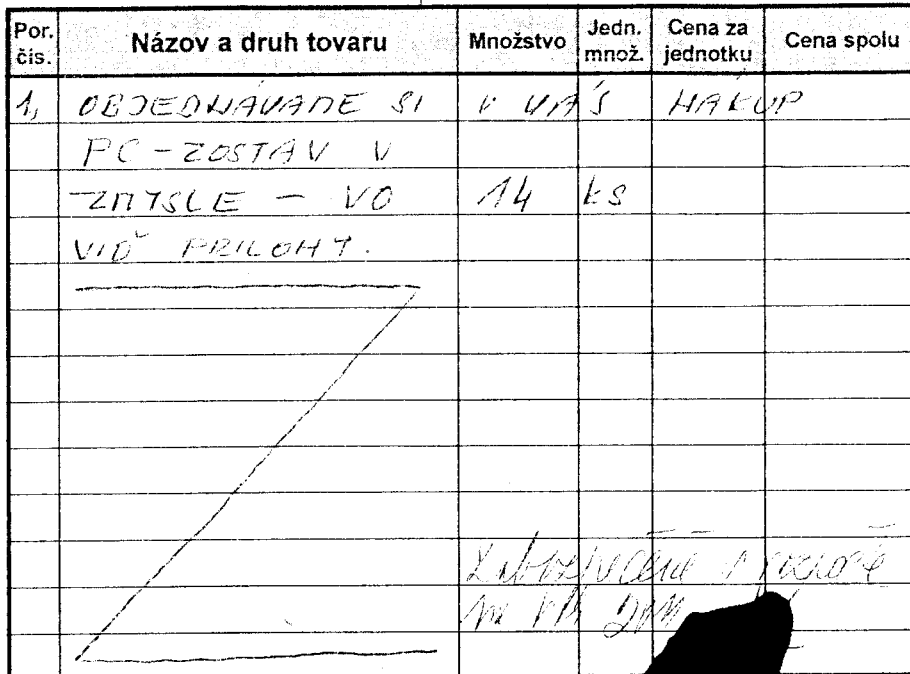 Por. čís. Názov a druh tovaru Množstvo Jedn. množ. Cena za jednotku Cena spolu
1, OBJEDNÁVAME SI U VÁS NÁKUP
PC-ZOSTÁV V
ZMYSLE - VO 14 ks
VIĎ PRÍLOHY.
Zabezpečené v rozpočte
na rok